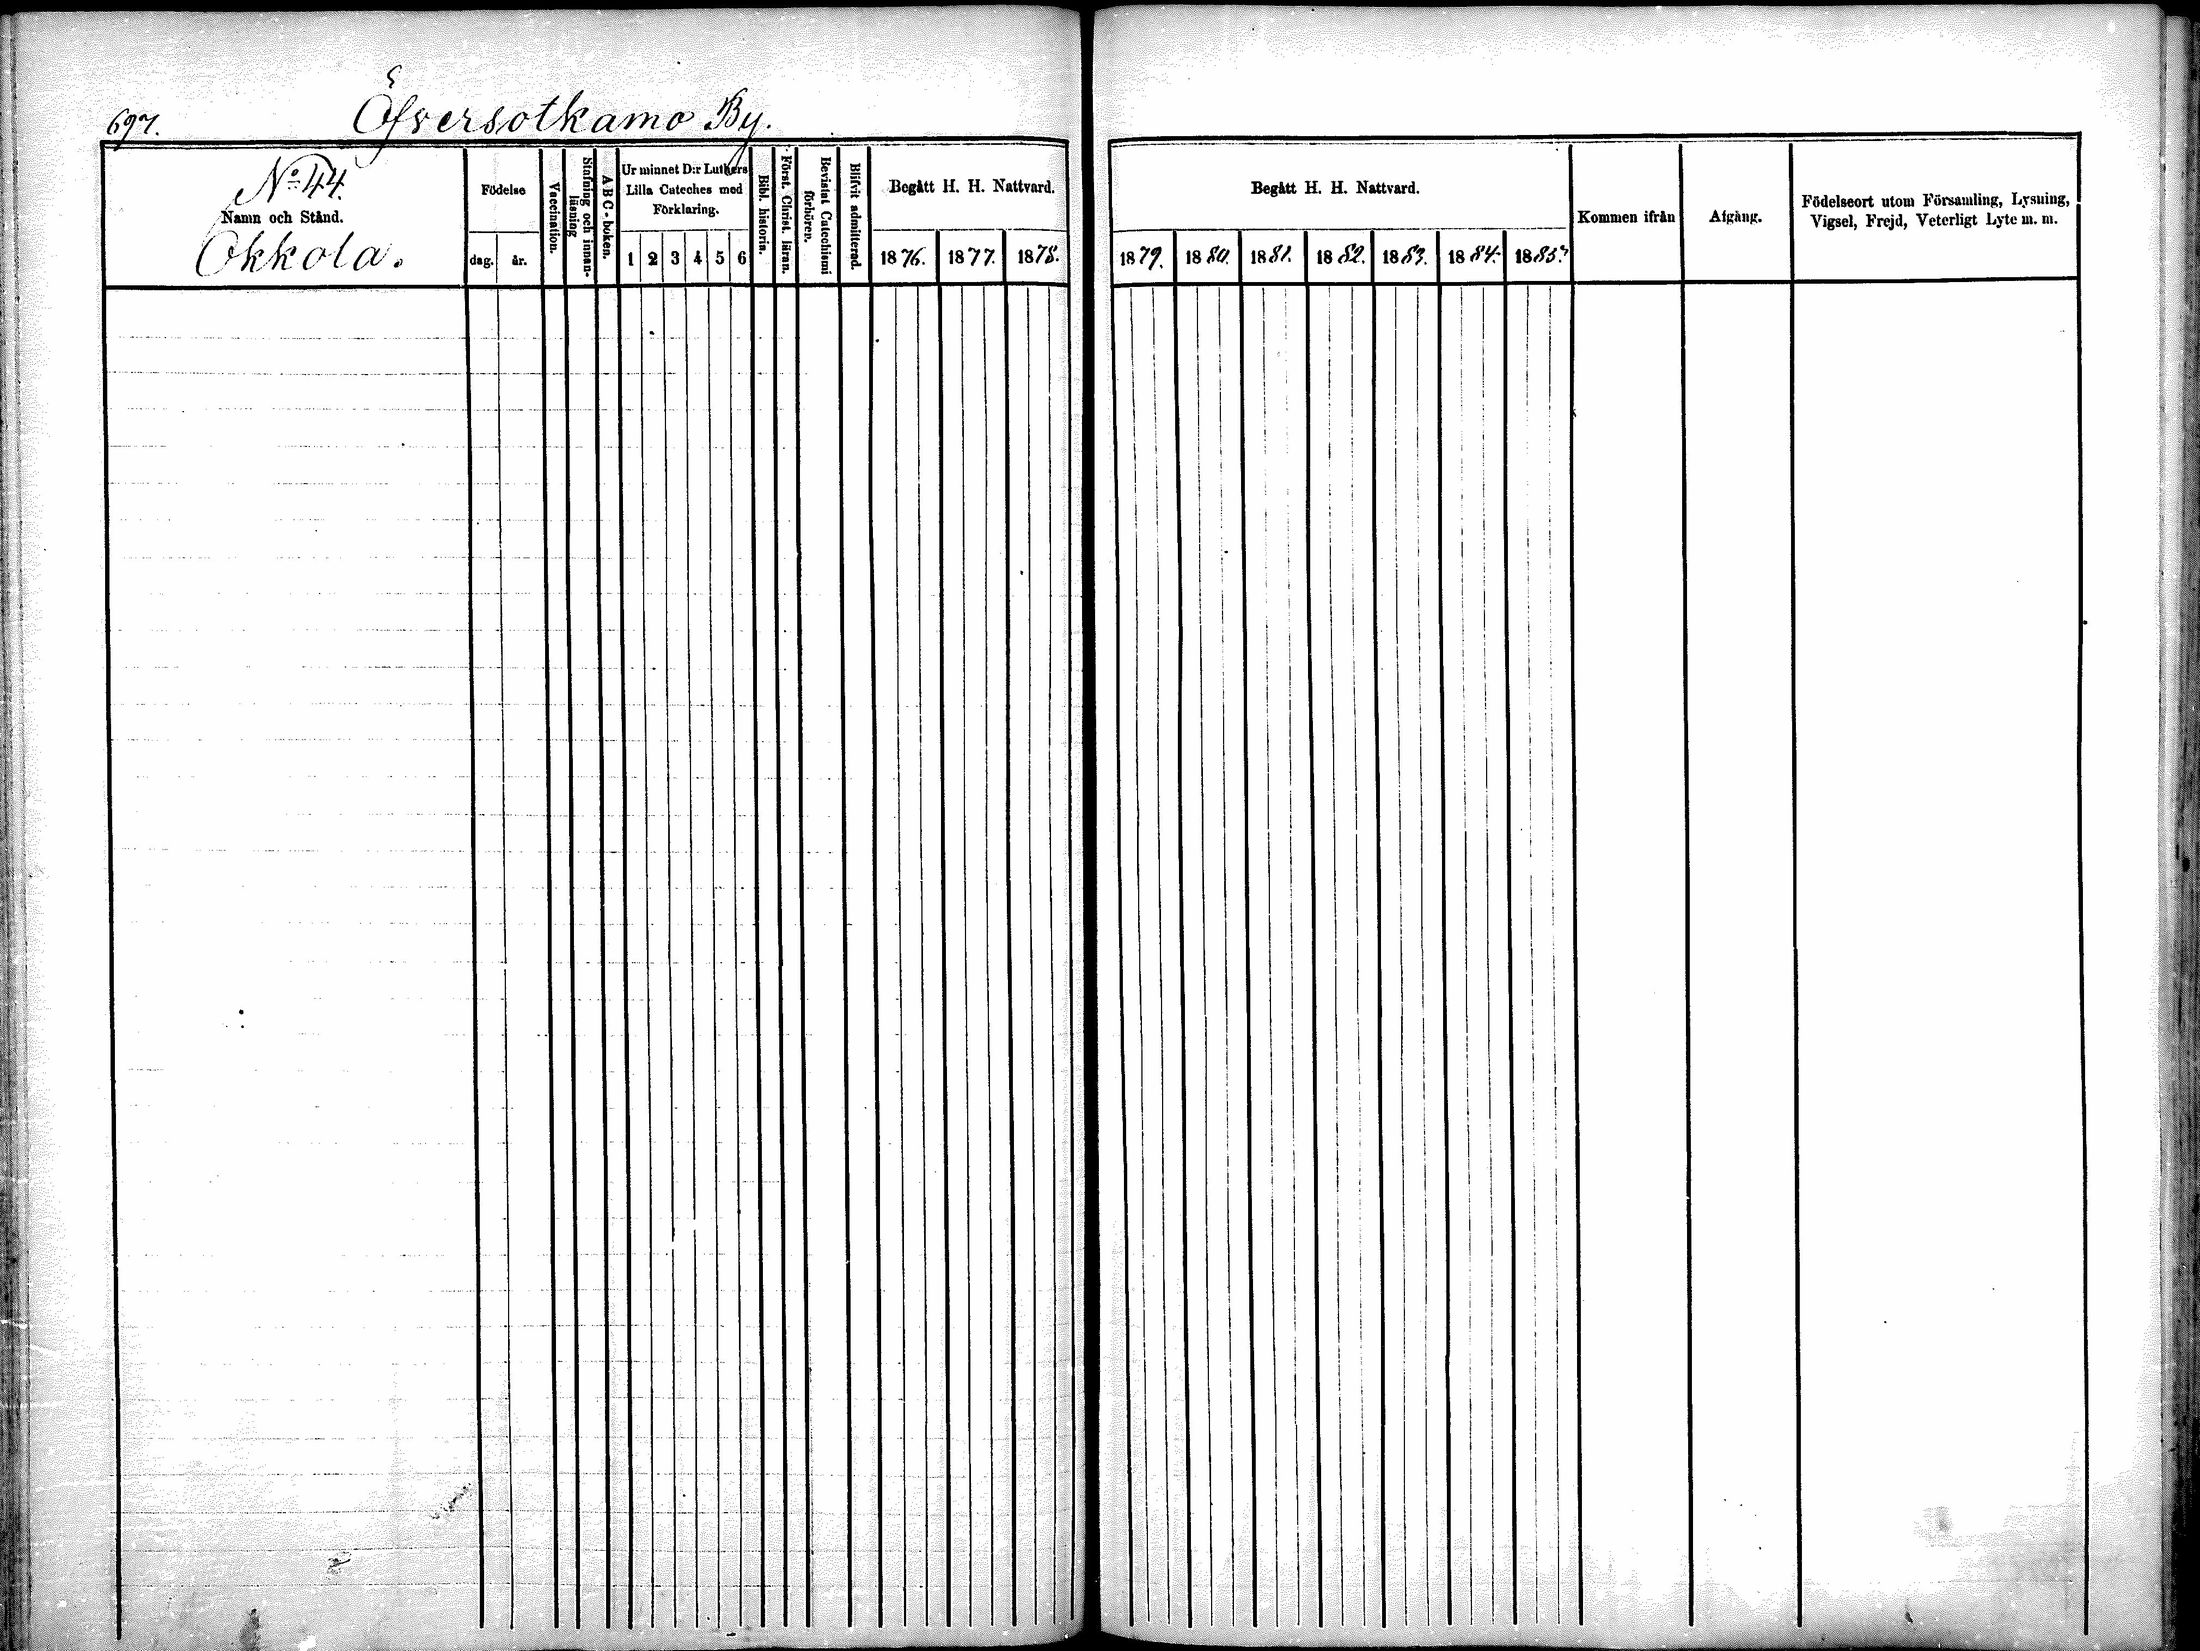 697.
Öfversotkamo By.
No 44.
Namn och Stånd.
Okkola.
Födelse
dag.
år.
Vaccination.
Stafning och innan-
läsning
ABC-boken.
Ur minnet D:r Luthers
Lilla Cateches med
Förklaring.
1 2 3 4 5 6
Bibl. historia.
Först. Christ. läran.
Bevistat Catechismi
förhören.
Blifvit admitterad.
Begått H. H. Nattvard.
1876. 1877. 1878.
Begått H. H. Nattvard.
1879. 1880. 1881. 1882. 1883. 1884. 1885.
Kommen ifrån
Afgång.
Födelseort utom Församling, Lysning,
Vigsel, Frejd, Veterligt Lyte m. m.